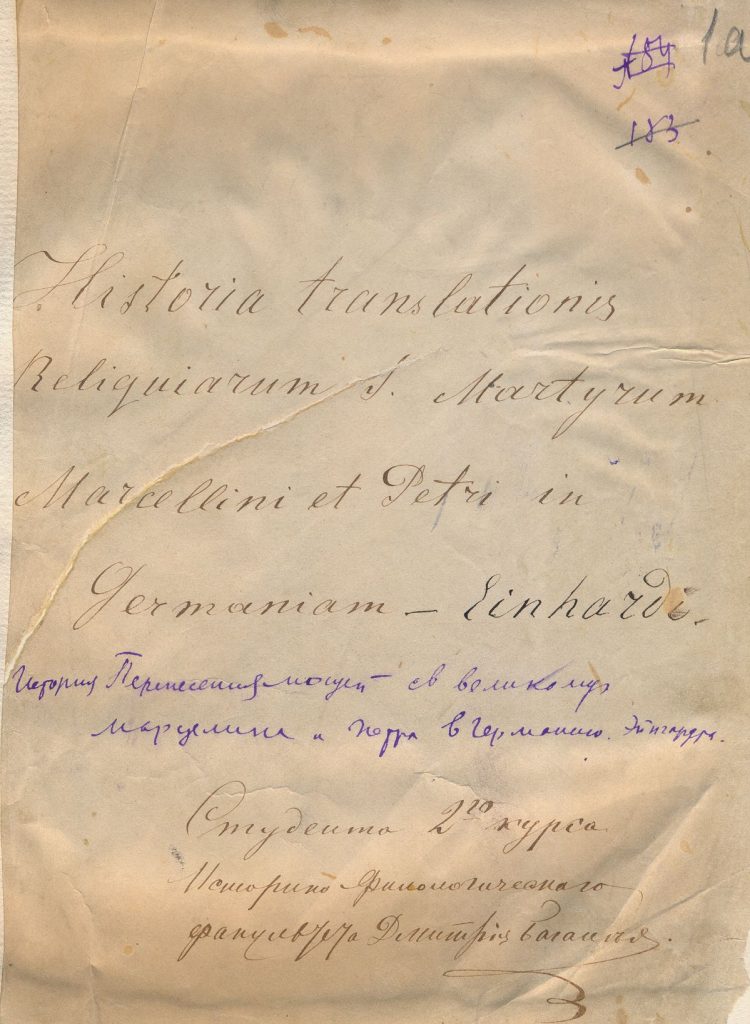 1а
184
183
Historia translationis
Reliquiarum S. Martyrum
Marcellini et Petri in
Germaniam – Einhardi.
История Перенесения мощей св великому
Марцелина и Петра в Германию. Эйнгарда.
Студента 2го курса
Историко Филологическаго
факультета Дмитрія Багалѣя.